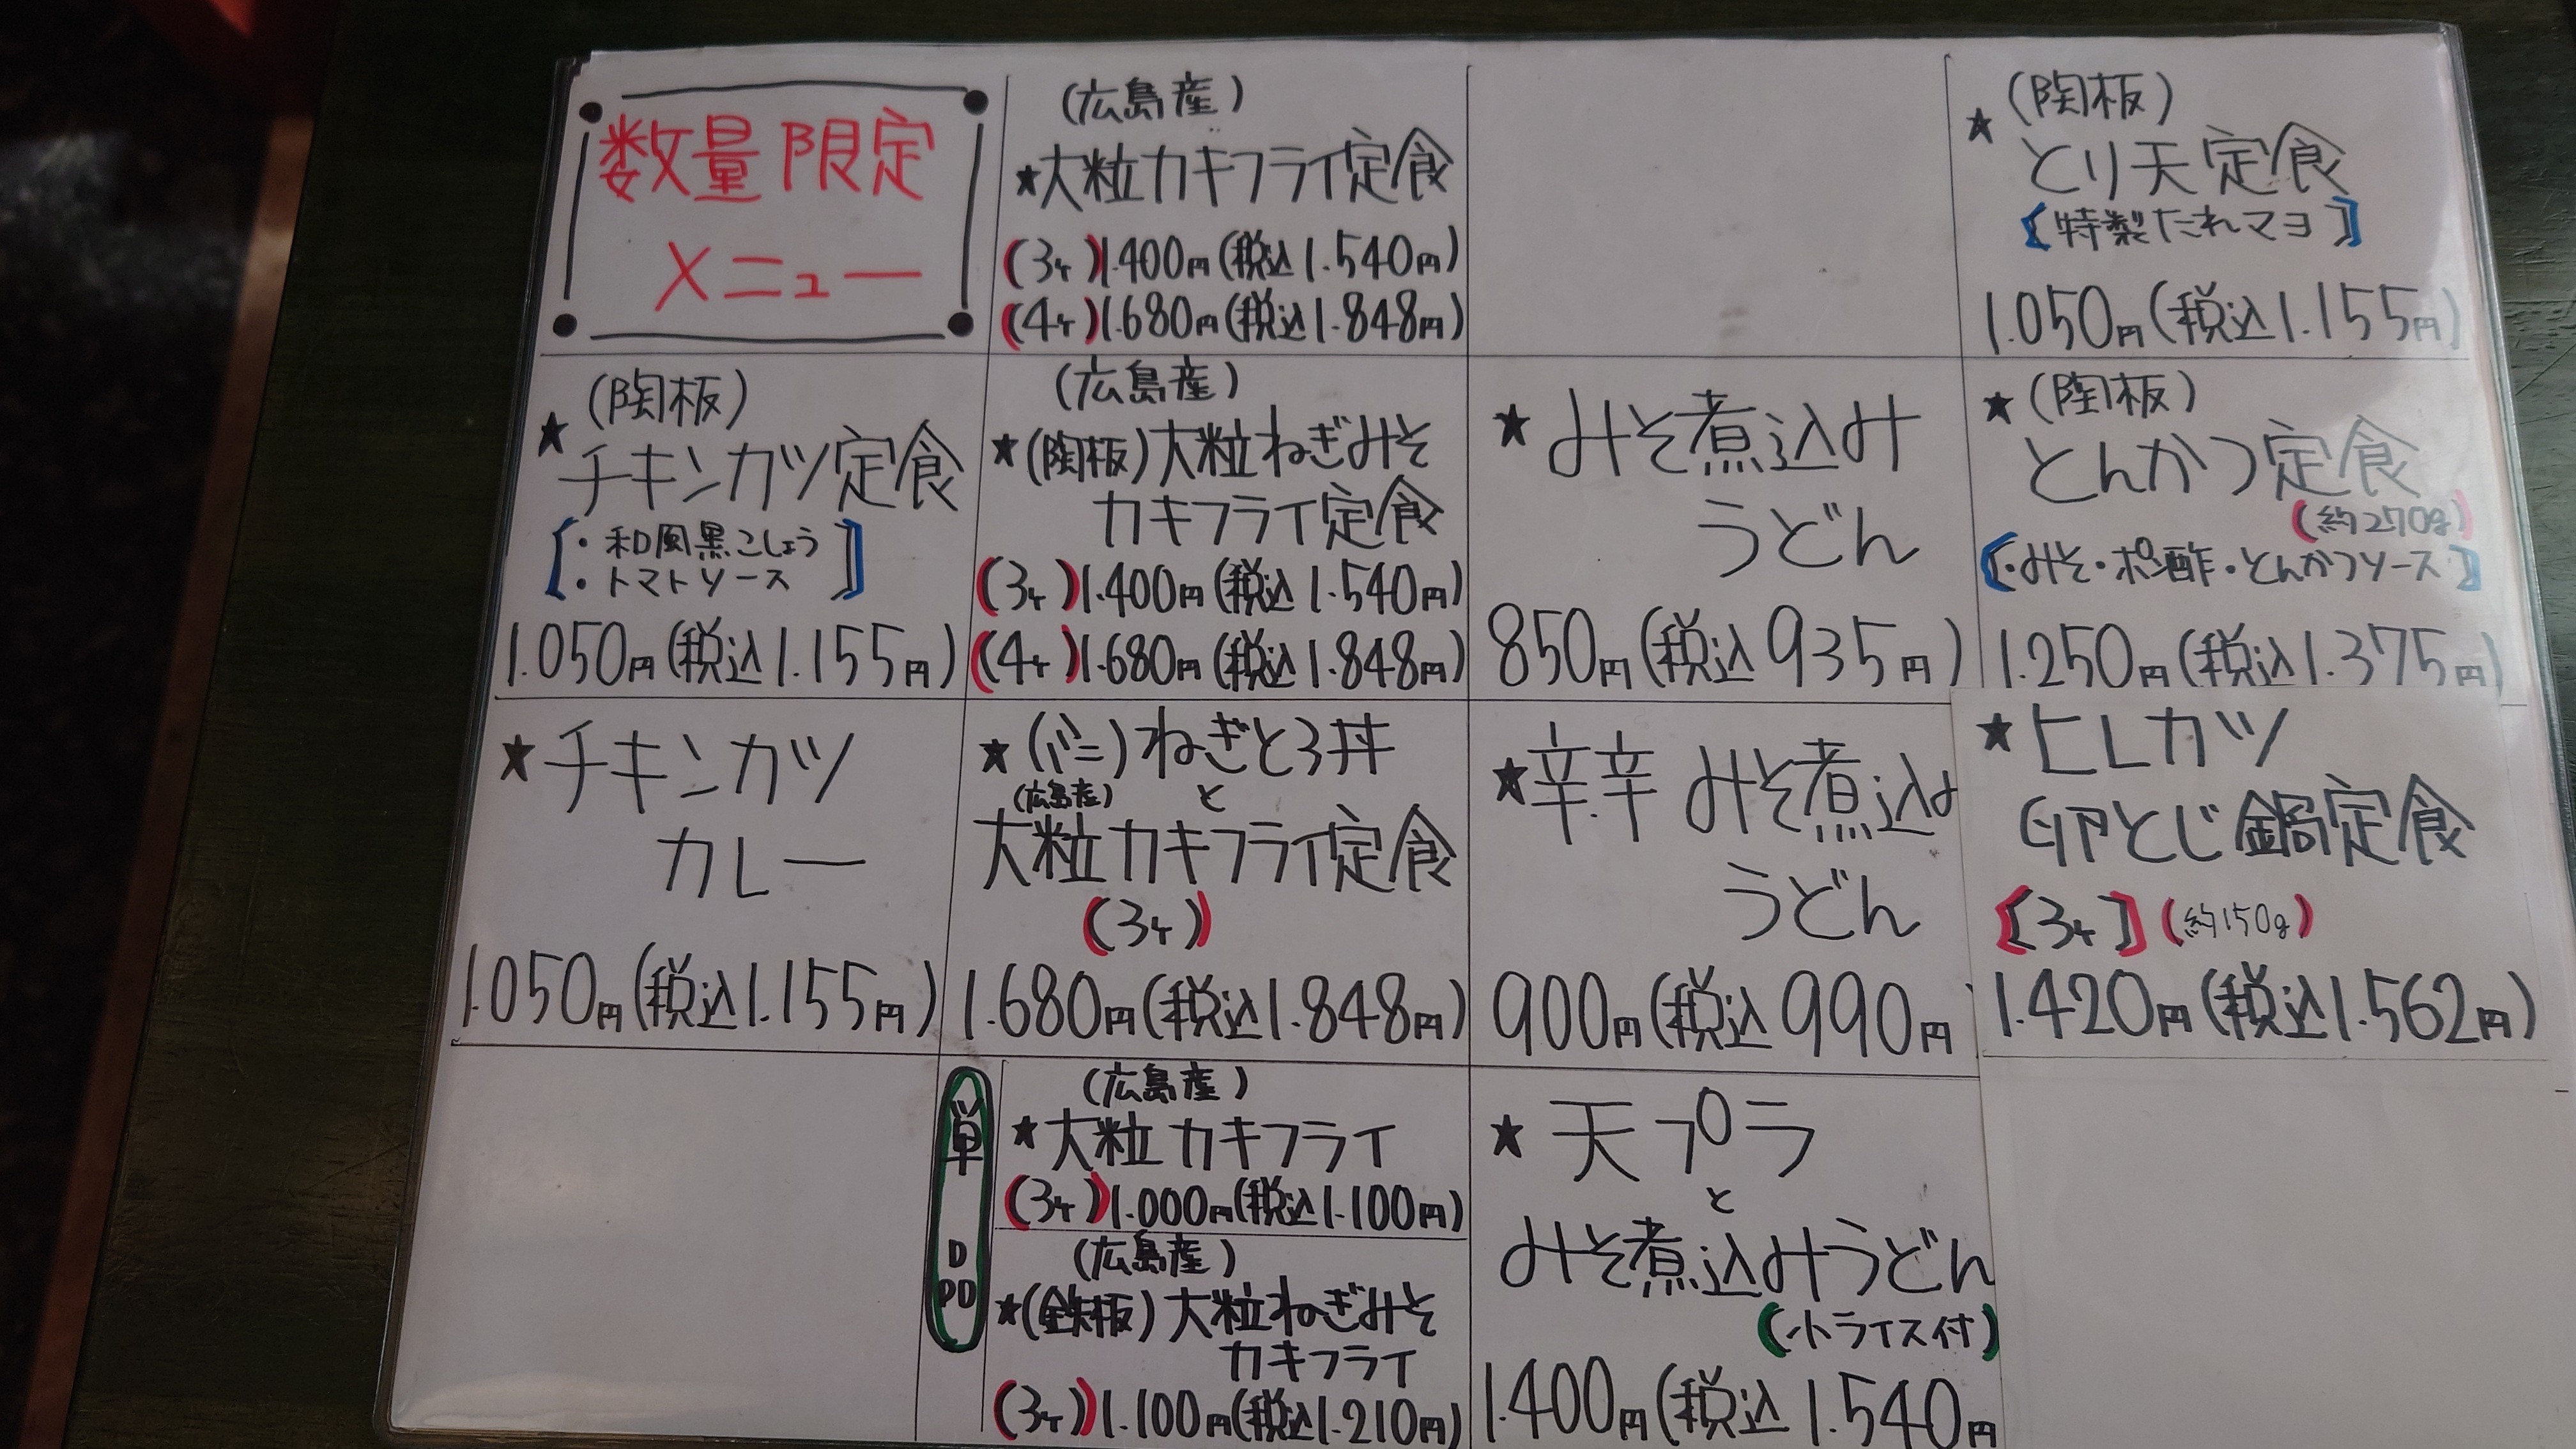 数量限定
メニュー
(広島産)
★大粒カキフライ定食
(3ヶ)1.400円(税込1.540円)
(4ヶ)1.680円(税込1.848円)
(陶板)
★とり天定食
【特製たれマヨ】
1.050円(税込1.155円)
(陶板)
★チキンカツ定食
【・和風黒こしょう
・トマトソース】
1.050円(税込1.155円)
(広島産)
★(陶板)大粒ねぎみそ
カキフライ定食
(3ヶ)1.400円(税込1.540円)
(4ヶ)1.680円(税込1.848円)
★みそ煮込み
うどん
850円(税込935円)
★(陶板)
とんかつ定食
(約270g)
【・みそ・ポン酢・とんかつソース】
1.250円(税込1.375円)
★チキンカツ
カレー
1.050円(税込1.155円)
★(ミニ)ねぎとろ丼
(広島産)と
大粒カキフライ定食
(3ヶ)
1.680円(税込1.848円)
★辛辛みそ煮込み
うどん
900円(税込990円
★ヒレカツ
卵とじ鍋定食
【3ヶ】(約150g)
1.420円(税込1.562円)
単
D
PD
(広島産)
★大粒カキフライ
(3ヶ)1.000円(税込1.100円)
(広島産)
★(鉄板)大粒ねぎみそ
カキフライ
(3ヶ)1.100円(税込1.210円)
★天プラ
と
みそ煮込みうどん
(小ライス付)
1.400円(税込1.540円